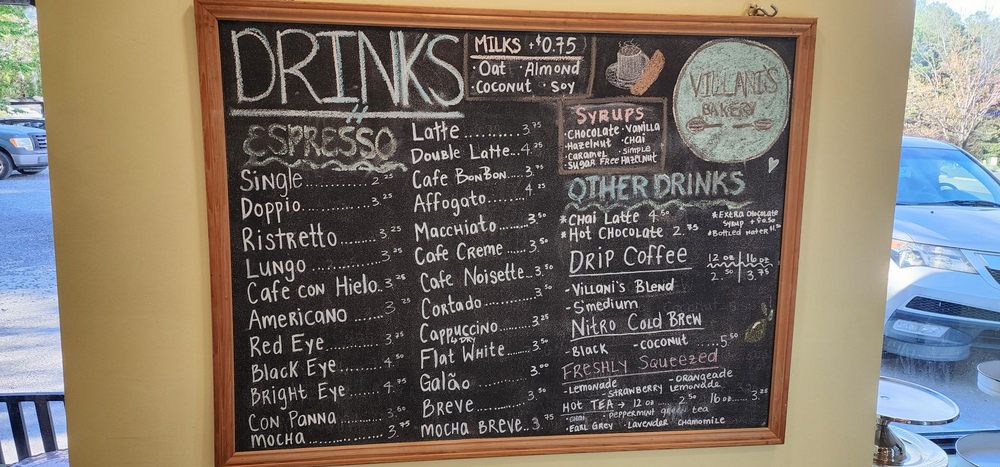 DRINKS
MILKS +$0.75
·Oat ·Almond
·Coconut ·Soy
SYRUPS
·Chocolate ·Vanilla
·Hazelnut ·Chai
·Caramel ·Simple
·Sugar Free Hazelnut
VILLANI'S
BAKERY
ESPRESSO
Single........... 2.25
Doppio........... 3.25
Ristretto....... 3.25
Lungo........... 3.25
Cafe con Hielo.. 3.25
Americano....... 3.25
Red Eye......... 3.75
Black Eye....... 4.50
Bright Eye...... 4.75
Con Panna....... 3.50
Mocha........... 3.75
Latte.......... 3.75
Double Latte... 4.25
Cafe BonBon.... 3.75
Affogato....... 4.25
Macchiato...... 3.50
Cafe Creme..... 3.50
Cafe Noisette.. 3.50
Cortado........ 3.50
Cappuccino..... 3.25
↳ Dry
Flat White..... 3.50
Galão.......... 3.00
Breve.......... 3.50
Mocha Breve.. 3.75
OTHER DRINKS
*Chai Latte 4.50
*Hot Chocolate 2.75
*Extra Chocolate
Syrup + $0.50
*Bottled Water $1.50
Drip Coffee
12 oz | 16 oz
2.50 | 3.75
-Villani's Blend
-S'medium
Nitro Cold Brew
-Black -Coconut ......5.50
Freshly Squeezed
-Lemonade -Orangeade
-Strawberry Lemonade
Hot Tea → 12 oz 2.50 16 oz..... 3.25
·Chai ·Peppermint green tea
·Earl Grey ·Lavender Chamomile